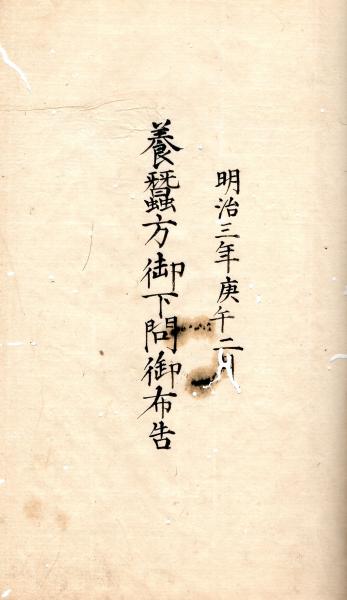 明治三年庚午二月
養蚕方御下問御布告